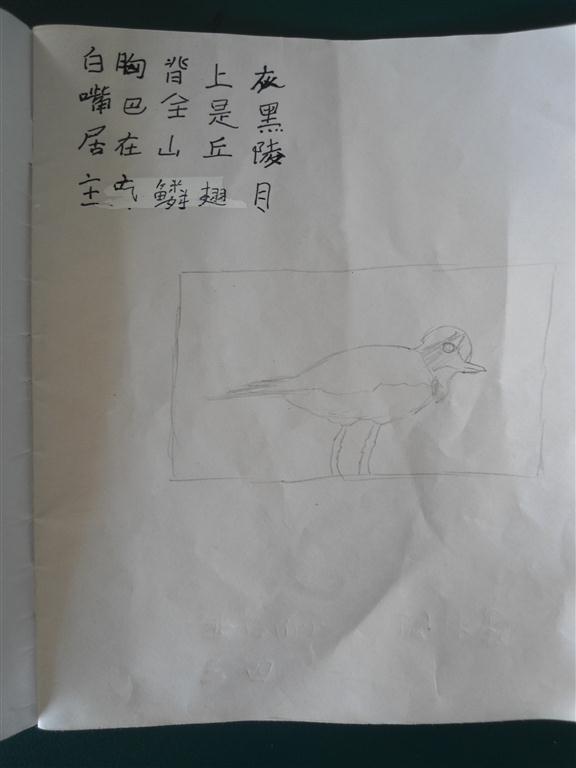 白胸背上灰
嘴巴全是黑
居在山丘陵
主吃鳞翅目